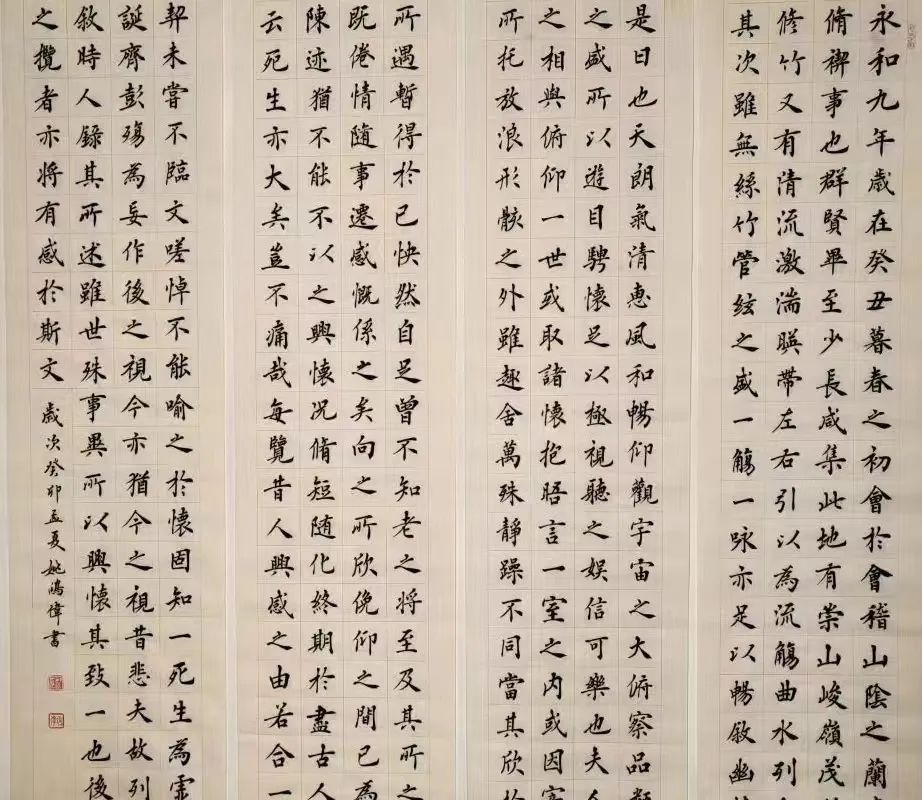 永和九年歲在癸丑暮春之初會於會稽山陰之蘭
脩禊事也群賢畢至少長咸集此地有崇山峻嶺茂
修竹又有清流激湍暎帶左右引以為流觴曲水列
其次雖無絲竹管絃之盛一觴一咏亦足以暢敘幽
是日也天朗氣清惠風和暢仰觀宇宙之大俯察品類
之盛所以遊目騁懷足以極視聽之娛信可樂也夫人
之相與俯仰一世或取諸懷抱晤言一室之內或因
所托放浪形骸之外雖趣舍萬殊靜躁不同當其欣於
所遇暫得於己快然自足曾不知老之將至及其所之
既倦情隨事遷感慨係之矣向之所欣俛仰之間已為
陳迹猶不能不以之興懷況脩短随化終期於盡古人
云死生亦大矣豈不痛哉每覽昔人興感之由若合一
契未嘗不臨文嗟悼不能喻之於懷固知一死生為虛
誕齊彭殤為妄作後之視今亦猶今之視昔悲夫故列
敘時人錄其所述雖世殊事異所以興懷其致一也後
之攬者亦將有感於斯文 歲次癸卯孟夏姚鴻偉書